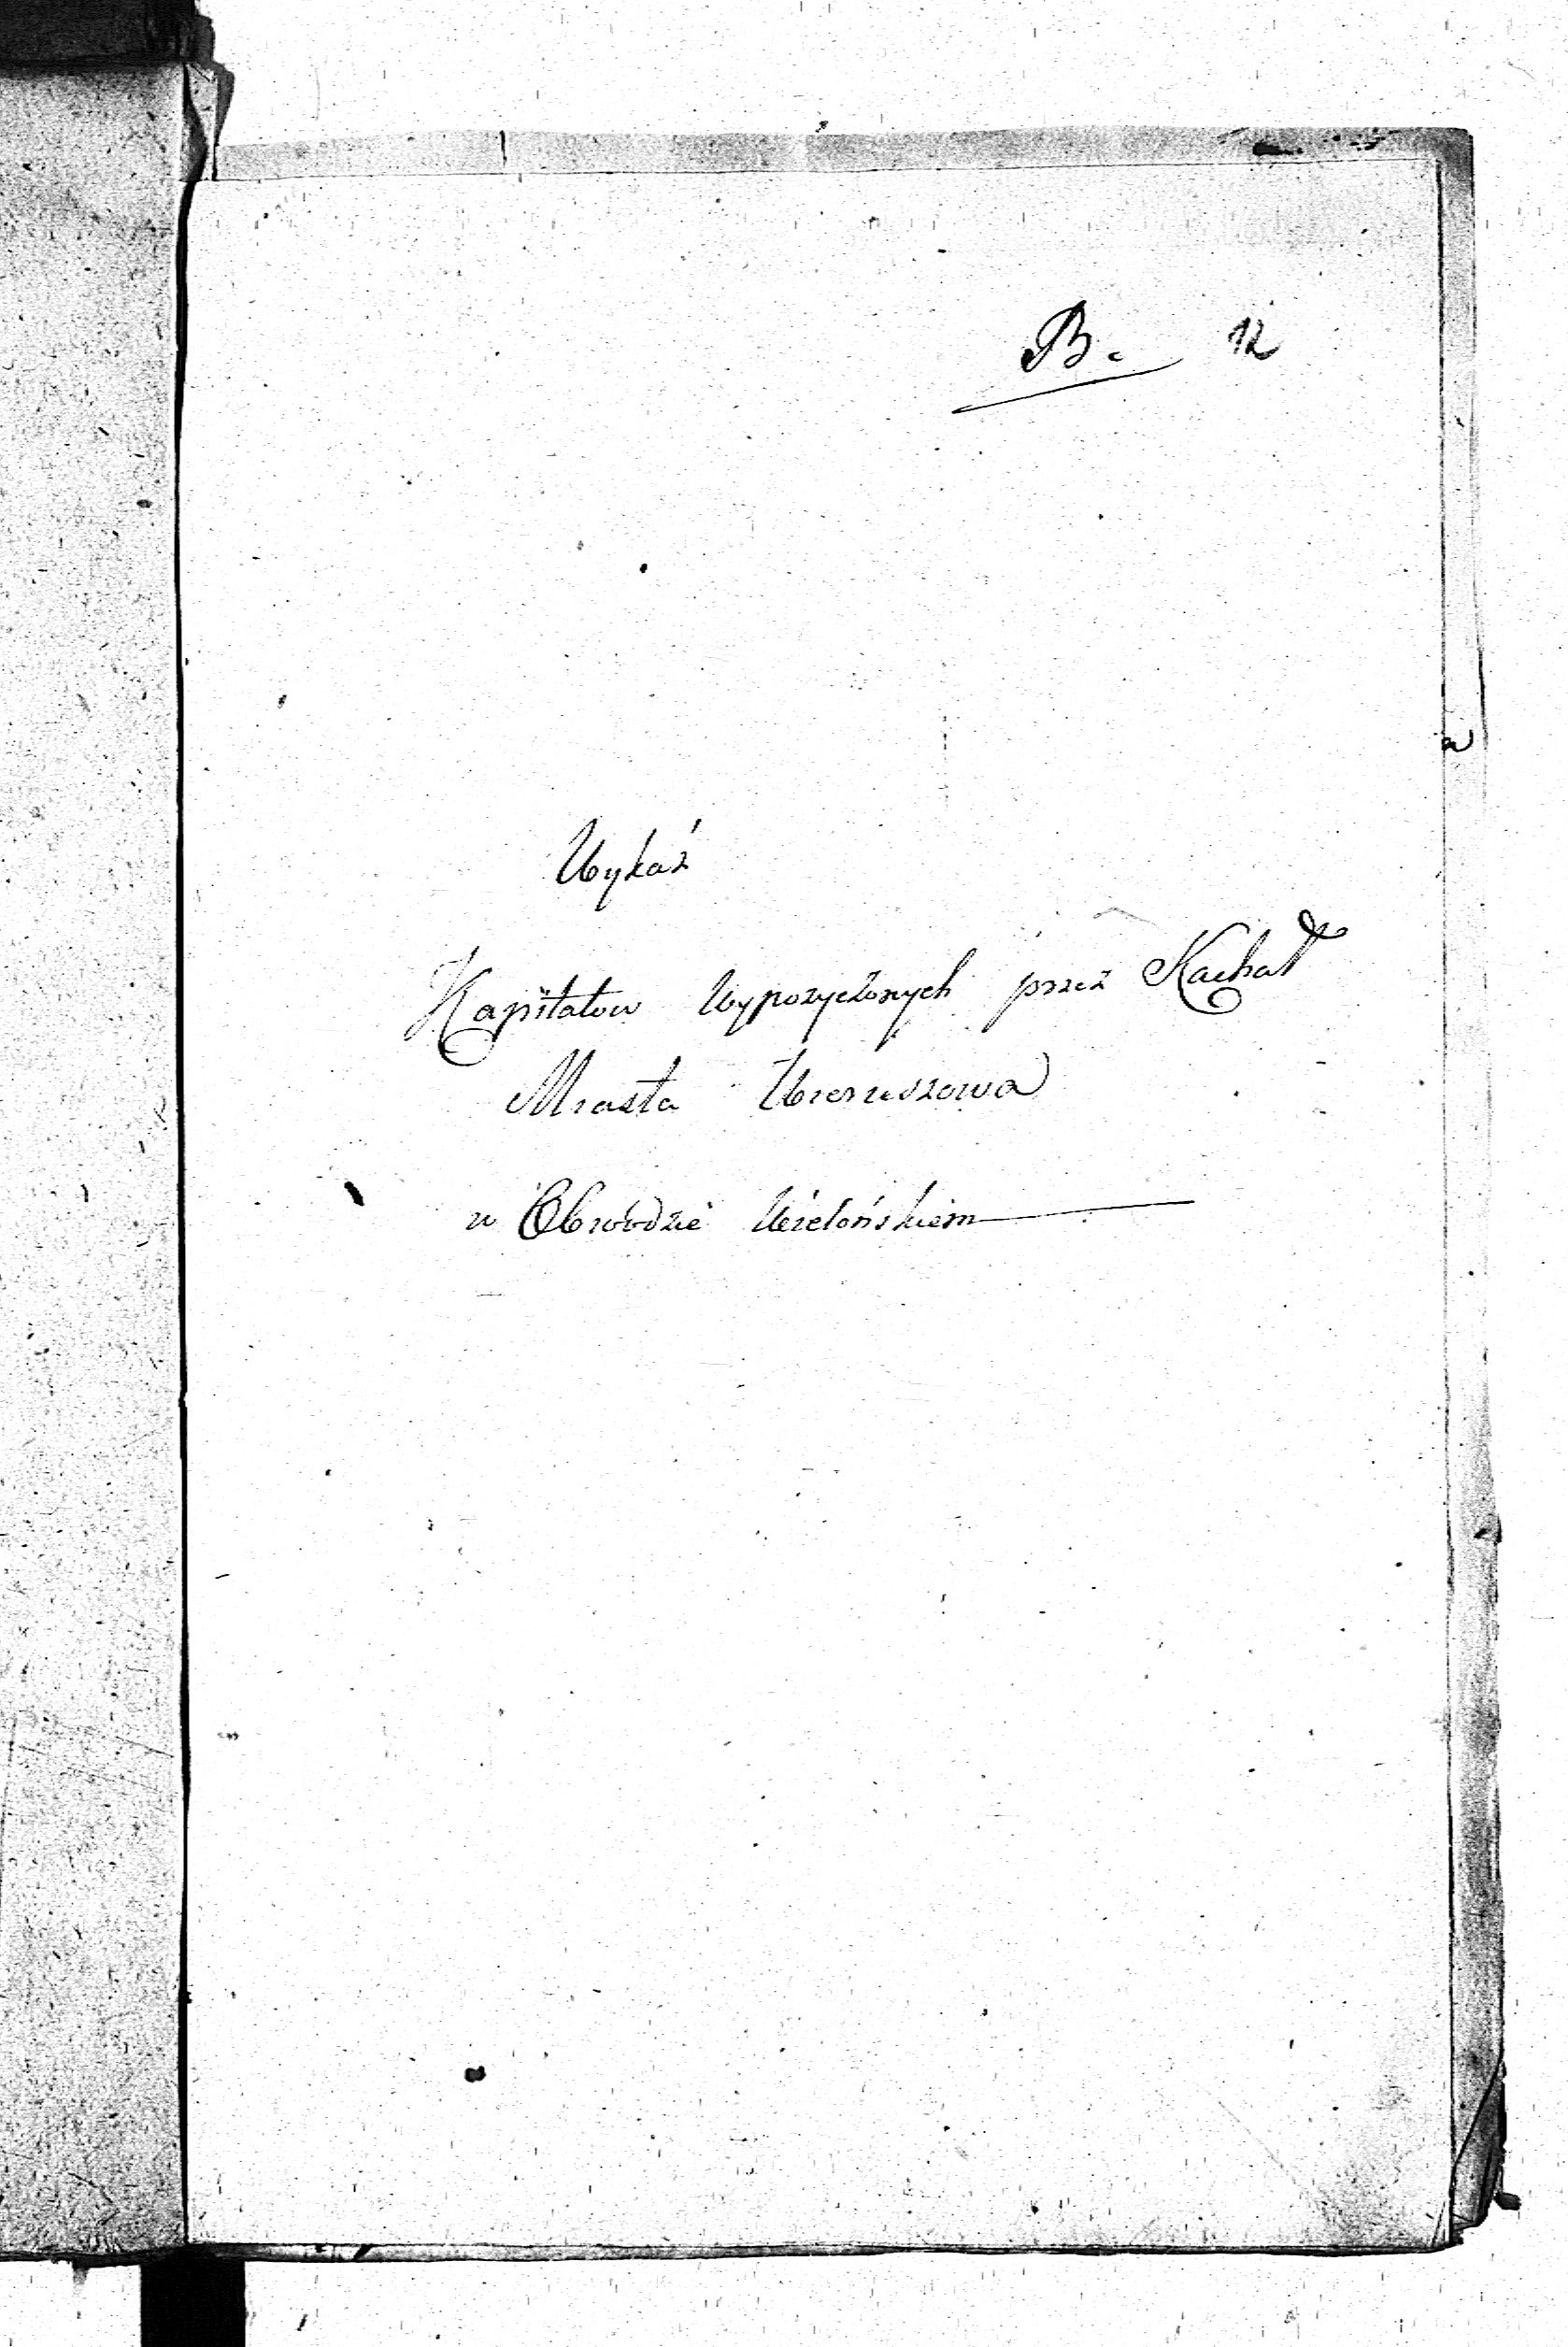 B. 12
Wykaź
Kapitałow Wypozyczonych przez Kachał
Miasta Wieruszowa
w Obwodzie Wielońskiem